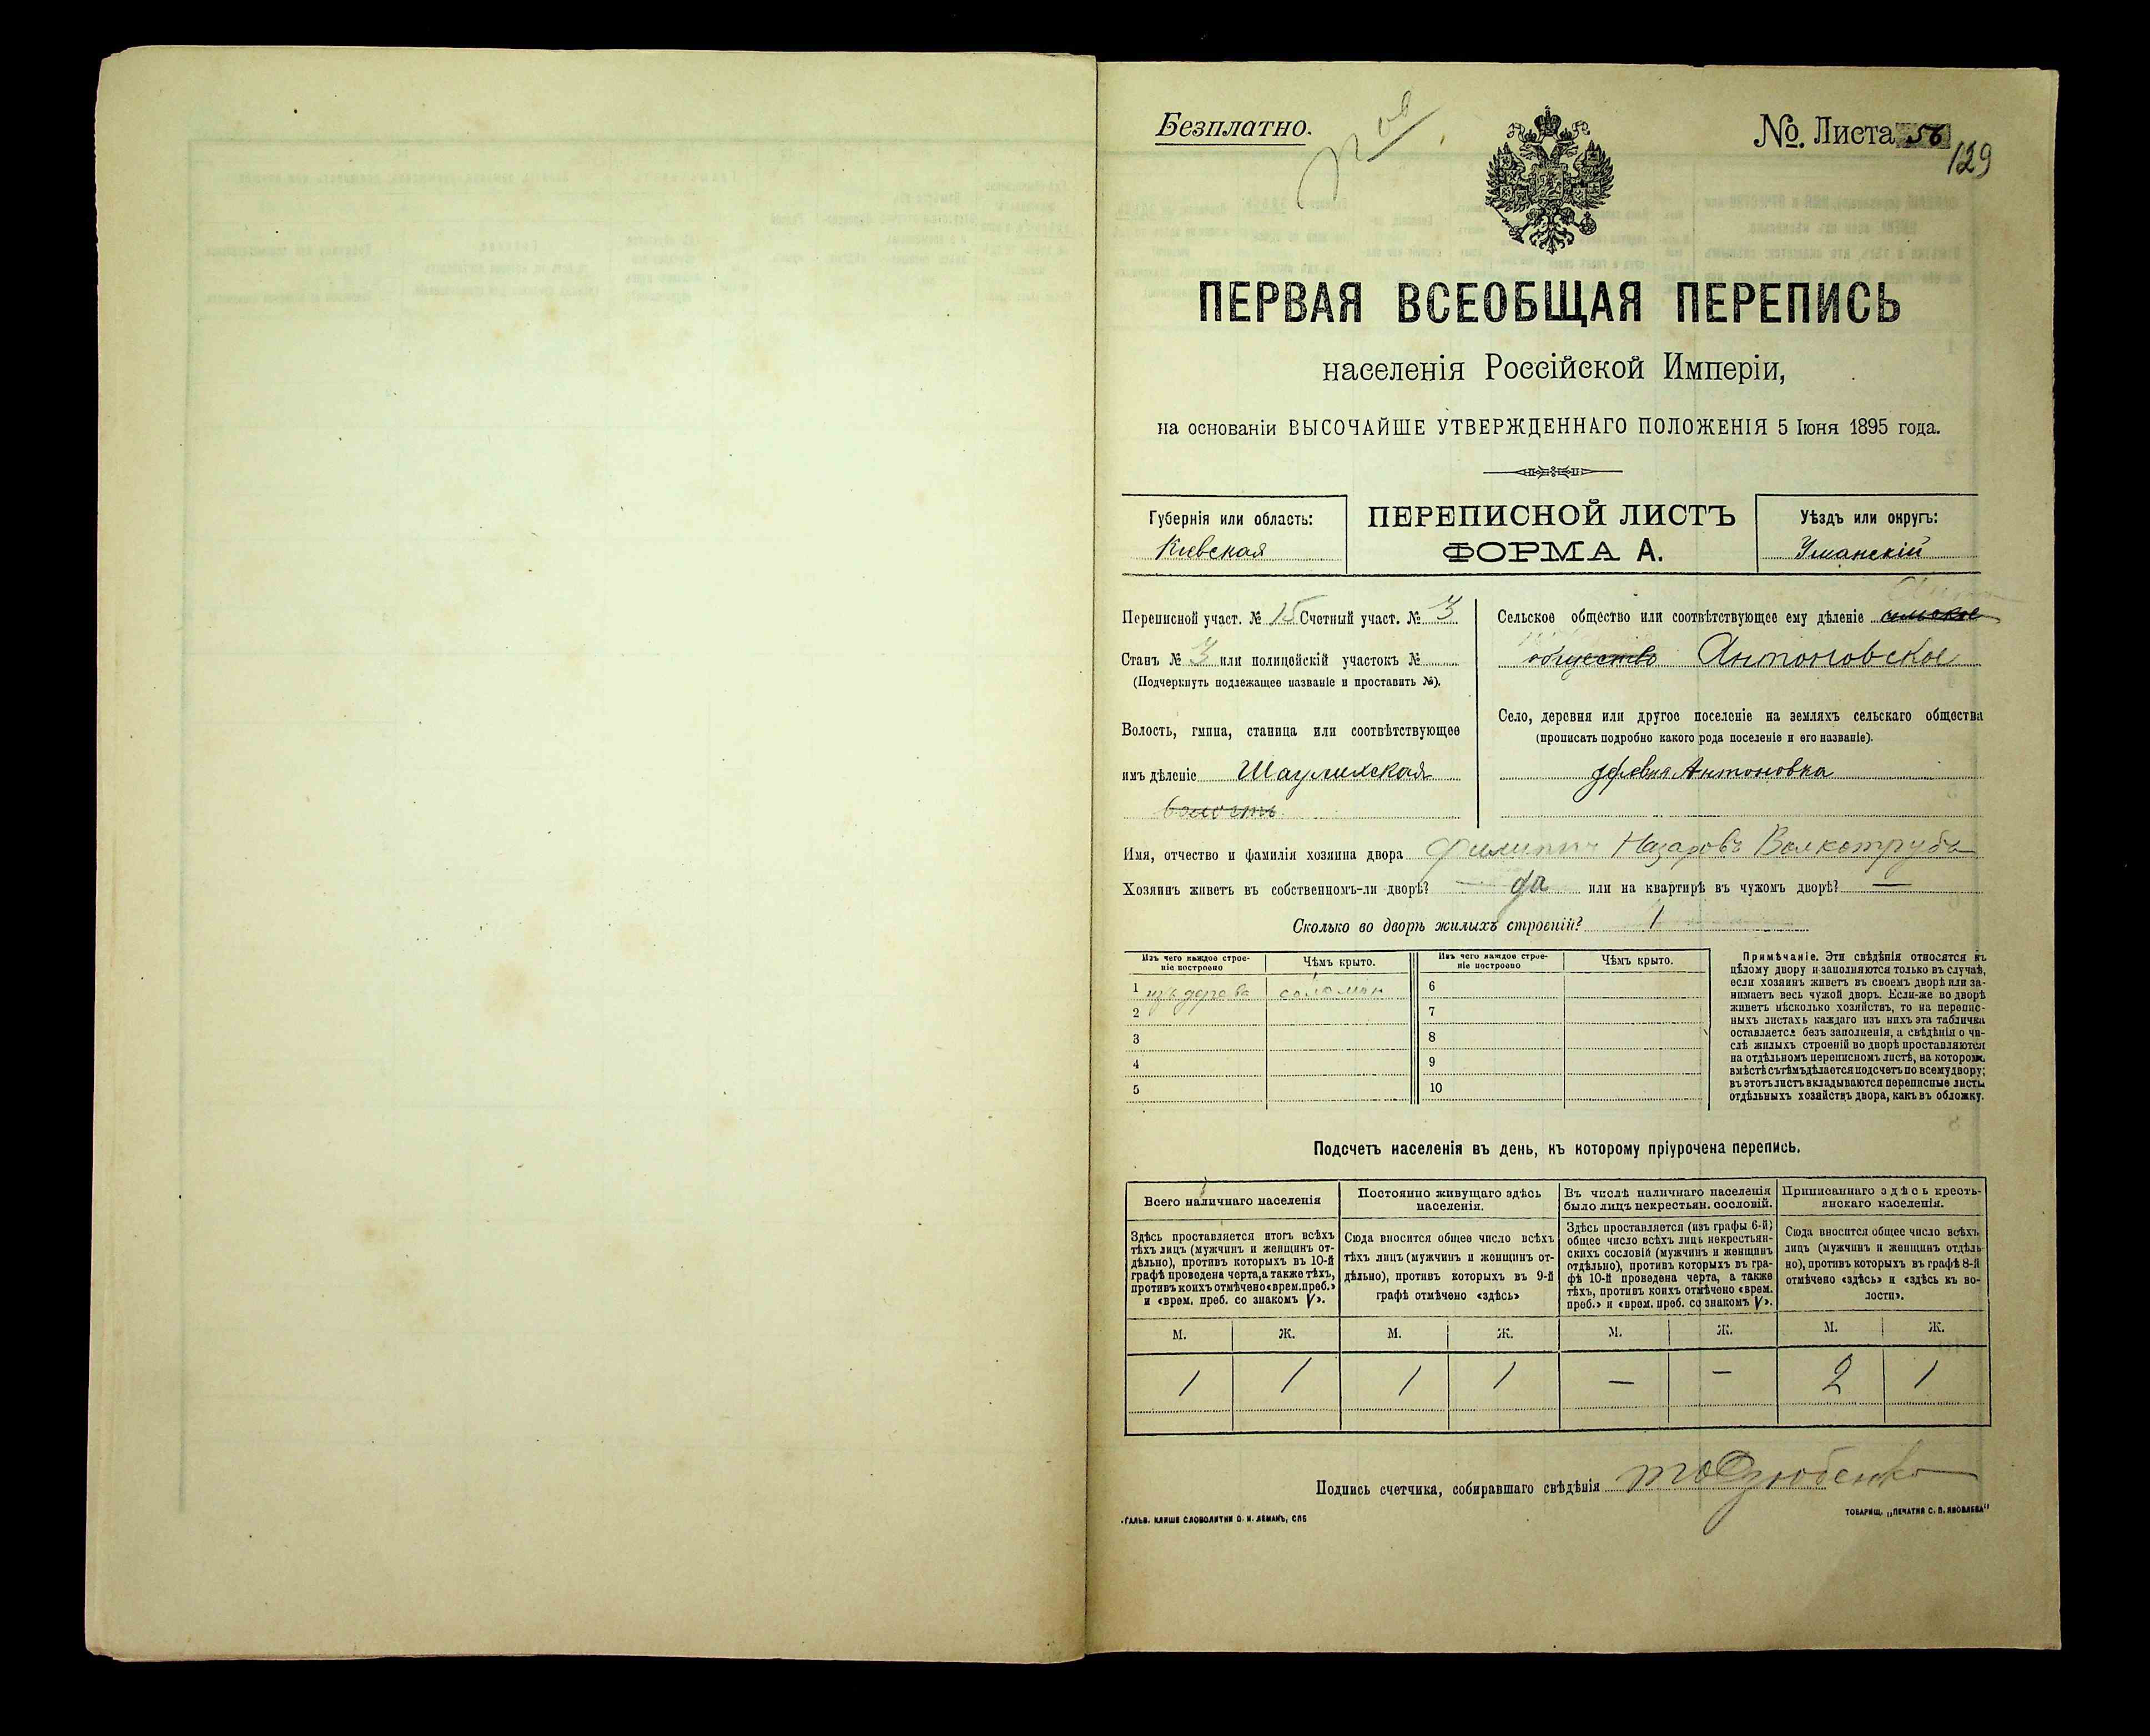 Безплатно.
№. Листа 56
129
ПЕРВАЯ ВСЕОБЩАЯ ПЕРЕПИСЬ
населенія Россійской Имперіи,
на основаніи ВЫСОЧАЙШЕ УТВЕРЖДЕННАГО ПОЛОЖЕНІЯ 5 Іюня 1895 года.
Губернія или область:
Кіевская
ПЕРЕПИСНОЙ ЛИСТЪ
ФОРМА А.
Уѣздъ или округъ:
Уманскій
Переписной участ. № 15 Счетный участ. № 3
Станъ № 3 или полицейскій участокъ №
(Подчеркнуть подлежащее названіе и проставить №).
Волость, гмина, станица или соотвѣтствующее
имъ дѣленіе Шаулихская
волость
Сельское общество или соотвѣтствующее ему дѣленіе сельское
общество Антоновское
Село, деревня или другое поселеніе на земляхъ сельскаго общества
(прописать подробно какого рода поселеніе и его названіе).
деревня Антоновка
Имя, отчество и фамилія хозяина двора Филиппъ Назаровъ Волкотруба
Хозяинъ живетъ въ собственномъ-ли дворѣ? да или на квартирѣ въ чужомъ дворѣ? —
Сколько во дворѣ жилыхъ строеній? 1
Изъ чего каждое строеніе построено
Чѣмъ крыто.
Изъ чего каждое строеніе построено
Чѣмъ крыто.
1 изъ дерева соломой
2
3
4
5
6
7
8
9
10
Примѣчаніе. Эти свѣдѣнія относятся къ
цѣлому двору и заполняются только въ случаѣ,
если хозяинъ живетъ въ своемъ дворѣ или за-
нимаетъ весь чужой дворъ. Если-же во дворѣ
живетъ нѣсколько хозяйствъ, то на перепис-
ныхъ листахъ каждаго изъ нихъ эта табличка
оставляется безъ заполненія, а свѣдѣнія о чи-
слѣ жилыхъ строеній во дворѣ проставляются
на отдѣльномъ переписномъ листѣ, на которомъ
вмѣстѣ съ тѣмъ дѣлается подсчетъ по всему двору;
въ этотъ листъ вкладываются переписные листы
отдѣльныхъ хозяйствъ двора, какъ въ обложку.
Подсчетъ населенія въ день, къ которому пріурочена перепись.
Всего наличнаго населенія
Здѣсь проставляется итогъ всѣхъ
тѣхъ лицъ (мужчинъ и женщинъ от-
дѣльно), противъ которыхъ въ 10-й
графѣ проведена черта, а также тѣхъ,
противъ коихъ отмѣчено «врем. преб.»
и «врем. преб. со знакомъ V».
Постоянно живущаго здѣсь
населенія.
Сюда вносится общее число всѣхъ
тѣхъ лицъ (мужчинъ и женщинъ от-
дѣльно), противъ которыхъ въ 9-й
графѣ отмѣчено «здѣсь»
Въ числѣ наличнаго населенія
было лицъ некрестьян. сословій.
Здѣсь проставляется (изъ графы 6-й)
общее число всѣхъ лицъ некрестьян-
скихъ сословій (мужчинъ и женщинъ
отдѣльно), противъ которыхъ въ гра-
фѣ 10-й проведена черта, а также
тѣхъ, противъ коихъ отмѣчено «врем.
преб.» и «врем. преб. со знакомъ V».
Приписаннаго здѣсь кресть-
янскаго населенія.
Сюда вносится общее число всѣхъ
лицъ (мужчинъ и женщинъ отдѣль-
но), противъ которыхъ въ графѣ 8-й
отмѣчено «здѣсь» и «здѣсь къ во-
лости».
М. Ж. М. Ж. М. Ж. М. Ж.
1 1 1 1 — — 2 1
Подпись счетчика, собиравшаго свѣдѣнія
ГАЛЬВ. КЛИШЕ СЛОВОЛИТНИ О. И. ЛЕМАНЪ, СПБ
ТОВАРИЩ. „ПЕЧАТНЯ С. П. ЯКОВЛЕВА"